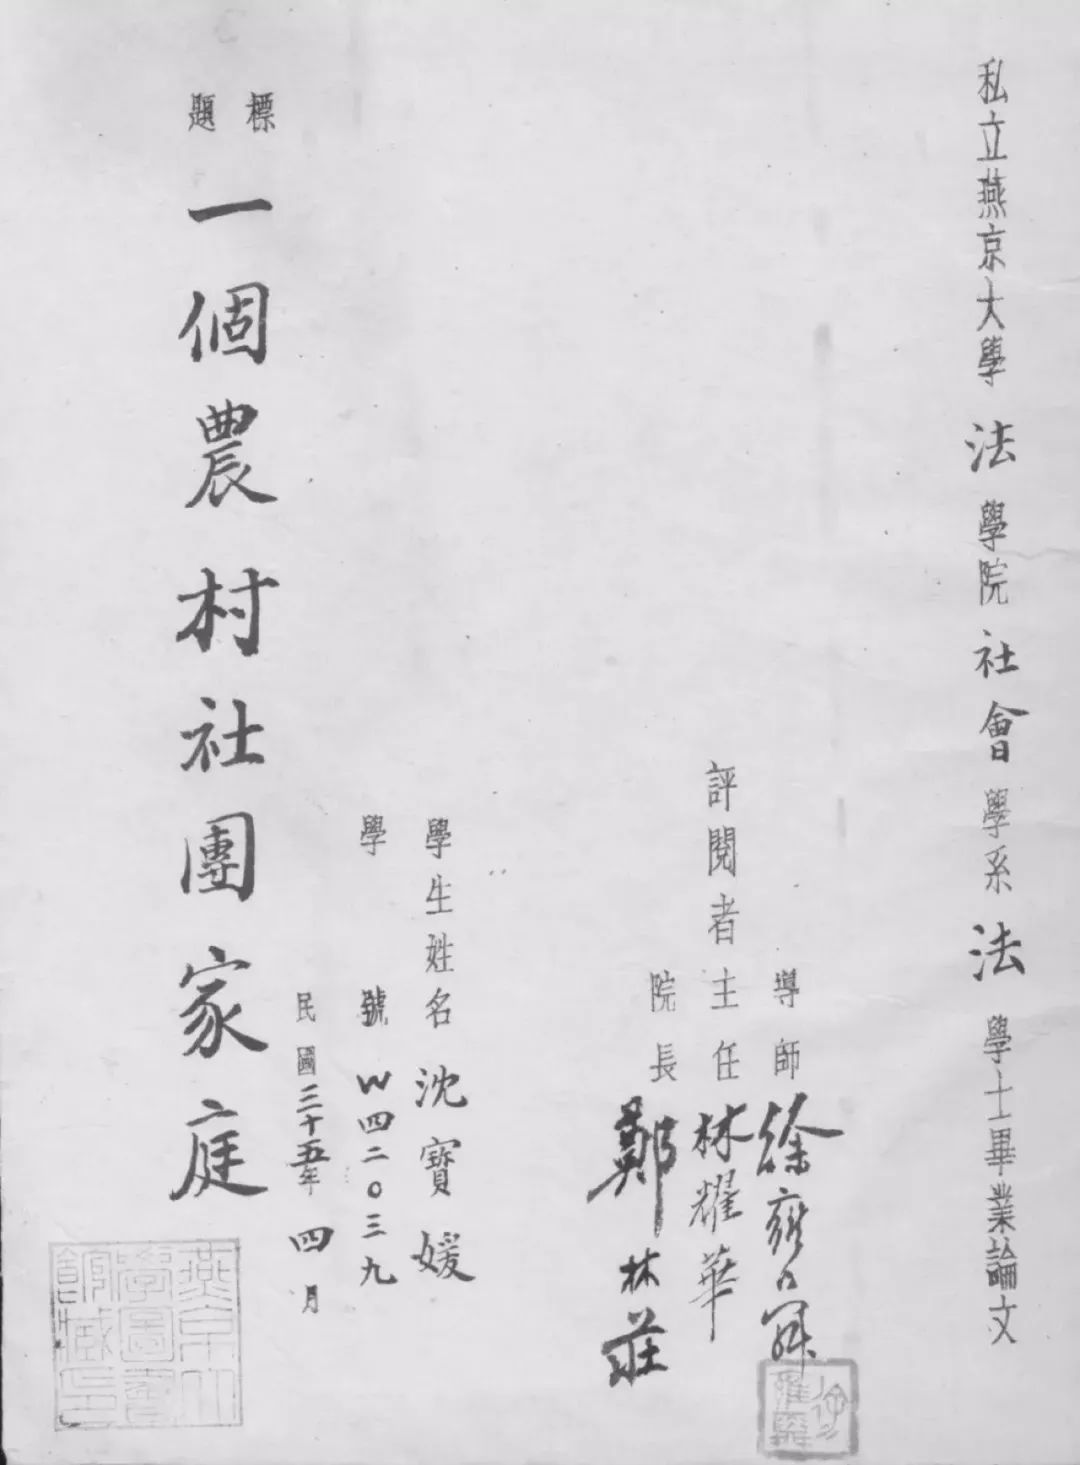 私立燕京大學法學院社會學系法學士畢業論文
導師徐雍舜
評閱者主任林耀華
院長鄭林莊
學生姓名沈寶媛
學號W四二〇三九
民國三十五年四月
標題一個農村社團家庭
燕京大學圖書館藏印